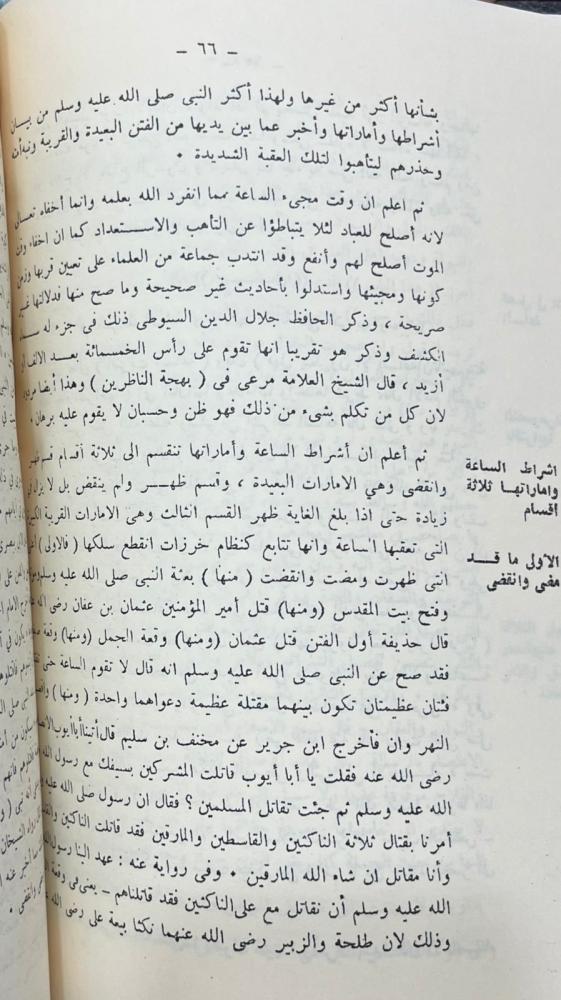 — ٦٦ —
بشأنها أكثر من غيرها ولهذا أكثر النبى صلى الله عليه وسلم من بيـــان
أشراطها وأماراتها وأخبر عما بين يديها من الفتن البعيدة والقريبة ونبه أمته
وحذرهم ليتأهبوا لتلك العقبة الشديدة •
ثم اعلم ان وقت مجىء الساعة مما انفرد الله بعلمه وانما أخفاه تعـــالى
لانه أصلح للعباد لئلا يتباطؤا عن التأهب والاســـتعداد كما ان اخفاء وقت
الموت أصلح لهم وأنفع وقد انتدب جماعة من العلماء على تعيين قربها وزمن
كونها ومجيئها واستدلوا بأحاديث غير صحيحة وما صح منها فدلالتها غير
صريحة ، وذكر الحافظ جلال الدين السيوطى ذلك فى جزء له سماه
الكشف وذكر هو تقريبا انها تقوم على رأس الخمسمائة بعـــد الالف أو
أزيد ، قال الشيخ العلامة مرعى فى ( بهجة الناظرين ) وهذا أيضا مردود
لان كل من تكلم بشىء من ذلك فهو ظن وحسبان لا يقوم عليه برهان •
ثم أعلم ان أشراط الساعة وأماراتها تنقسم الى ثلاثة أقسام قسم ظهر
وانقضى وهي الامارات البعيدة ، وقسم ظهـــر ولم ينقض بل لا يزال فى
زيادة حتى اذا بلغ الغاية ظهر القسم الثالث وهى الامارات القريبة الكبيرة
التى تعقبها الساعة وانها تتابع كنظام خرزات انقطع سلكها ( فالاولى )
التى ظهرت ومضت وانقضت ( منها ) بعثة النبى صلى الله عليه وسلم
وفتح بيت المقدس (ومنها) قتل أمير المؤمنين عثمان بن عفان رضى الله عنه
قال حذيفة أول الفتن قتل عثمان (ومنها) وقعة الجمل (ومنها) وقعة صفين
فقد صح عن النبى صلى الله عليه وسلم انه قال لا تقوم الساعة حتى
فئتان عظيمتان تكون بينهما مقتلة عظيمة دعواهما واحدة ( ومنها )
النهر وان فأخرج ابن جرير عن مخنف بن سليم قال أتينا أبا أيوب
رضى الله عنه فقلت يا أبا أيوب قاتلت المشركين بسيفك مع رسول الله
الله عليه وسلم ثم جئت تقاتل المسلمين ؟ فقال ان رسول صلى الله عليه
أمرنا بقتال ثلاثة الناكثين والقاسطين والمارقين فقد قاتلت الناكثين
وأنا مقاتل ان شاء الله المارقين • وفى رواية عنه : عهد الينا رسول
الله عليه وسلم أن نقاتل مع على الناكثين فقد قاتلناهم – يعنى فى وقعة
وذلك لان طلحة والزبير رضى الله عنهما نكثا بيعة على رضى الله
اشراط الساعة
واماراتهـا ثلاثة
اقسام
الاولى ما قـــد
مضى وانقضى